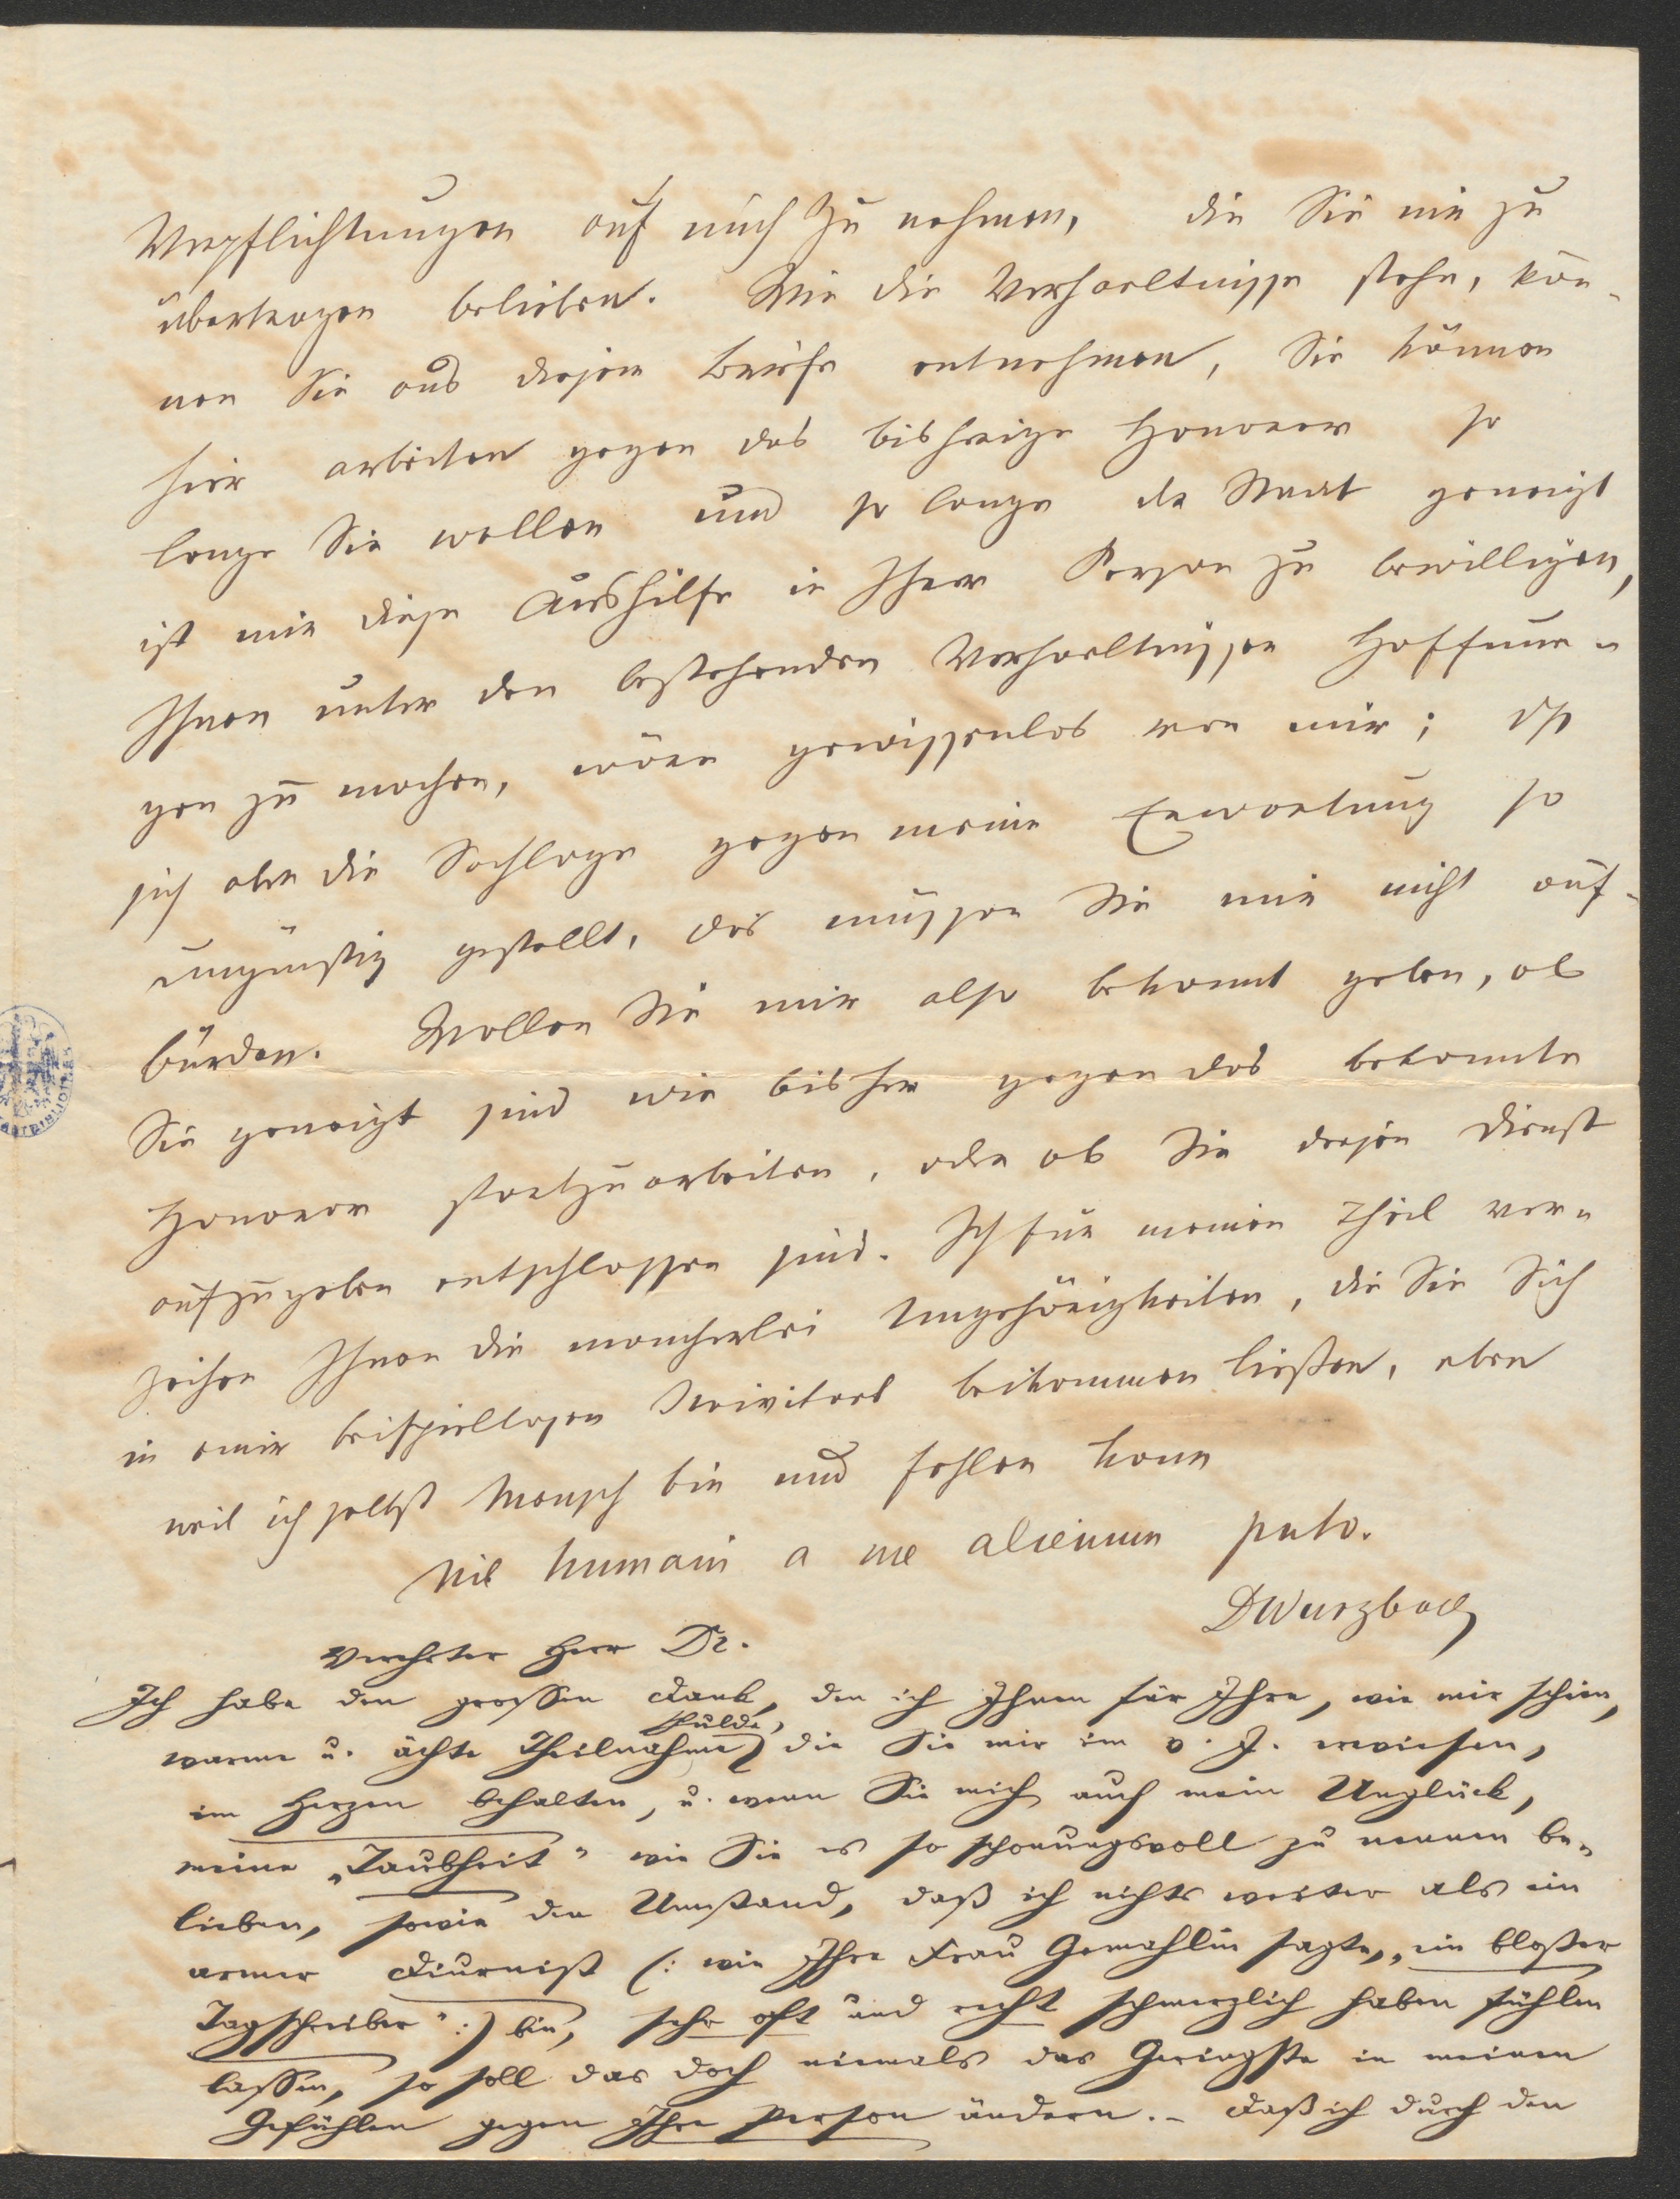 Verpflichtungen auf mich zu nehmen, die Sie mir zu
übertragen belieben. Wie die Verhaeltnisse stehn, kön-
nen Sie aus diesem Briefe entnehmen, Sie können
hier arbeiten gegen das bisherige Honorar so
lange Sie wollen und so lange der Staat geneigt
ist mir diese Aushilfe in Ihrer Person zu bewilligen,
Ihnen unter den bestehenden Verhaeltnissen Hoffnun-
gen zu machen, wäre gewissenlos von mir; daß
sich aber die Sachlage gegen meine Erwartung so
ungünstig gestellt, das müssen Sie mir nicht auf-
bürden. Wollen Sie mir also bekannt geben, ob
Sie geneigt sind wie bisher gegen das bekannte
Honorar fortzuarbeiten, oder ob Sie diesen Dienst
aufzugeben entschlossen sind. Ich für meinen Theil ver-
zeihe Ihnen die mancherlei Ungehörigkeiten, die Sie Sich
in einer beispiellosen Naivitaet beikommen ließen, eben
weil ich selbst Mensch bin und fehlen kann
Nil humani a me alienum puto.
DWurzbach
Verehrter Herr Dr.
Ich habe den grossen Dank, den ich Ihnen für Ihre, wie mir schien,
warme u. ächte Theilnahme schulde, die Sie mir im v. J. erwiesen,
im Herzen behalten, u. wenn Sie mich auch mein Unglück,
meine „Taubheit" wie Sie es so schonungsvoll zu nennen be-
lieben, sowie den Umstand, daß ich nichts weiter als ein
armer Diurnist (: wie Ihre Frau Gemahlin sagte, „ein bloßer
Tagschreiber":) bin, sehr oft und recht schmerzlich haben fühlen
lassen, so soll das doch niemals das Geringste in meinen
Gefühlen gegen Ihre Person ändern. – Daß ich durch den